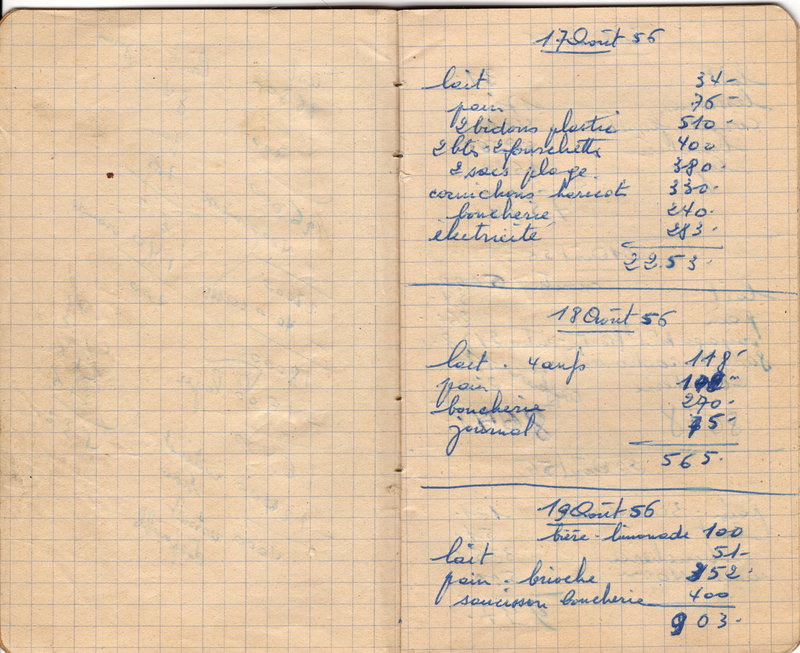 17 Août 56
lait 34-
pain 76-
2 bidons plastic 510-
2 bts - 2 fourchette 400
2 sacs plage. 380-
cornichons haricot 330-
boucherie 240-
électricité 283-
2253.
18 Août 56
lait - 4 œufs 118-
pain
boucherie 270-
journal 75-
565.
19 Août 56
bière - limonade 100
lait 51-
pain - brioche 352-
saucisson boucherie 400
903-